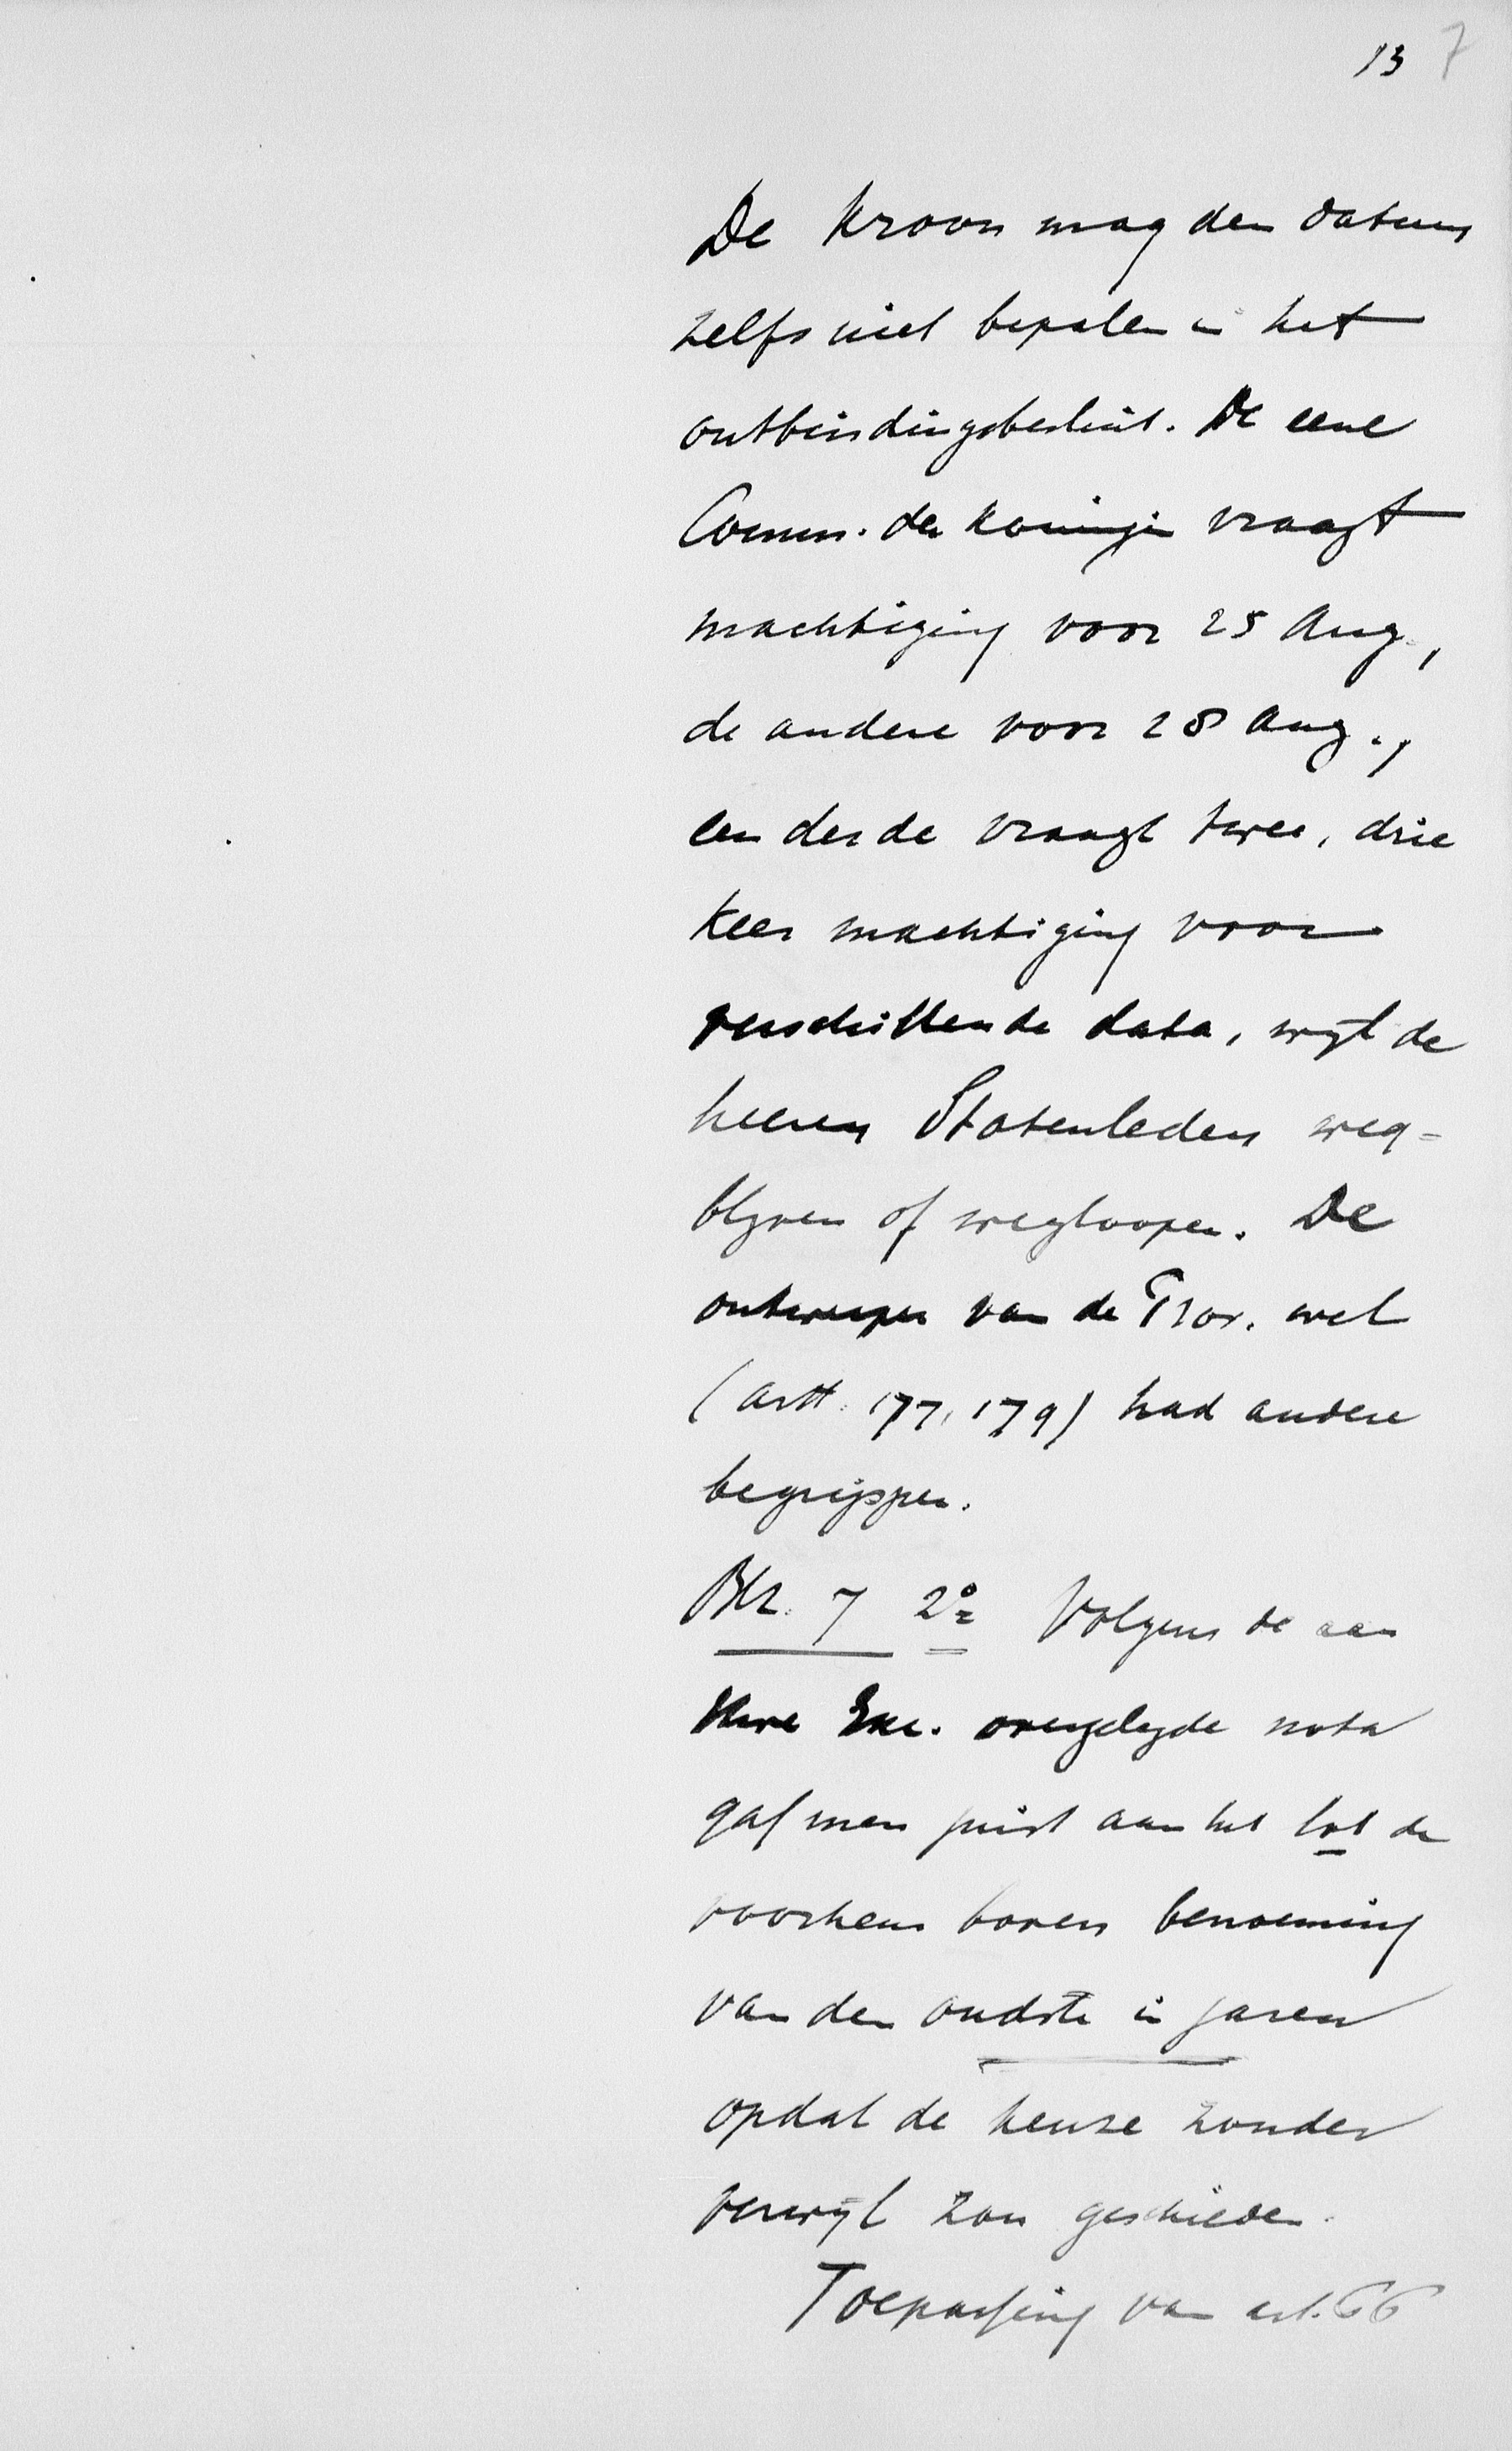 13 7
De Kroon mag den datum
zelfs niet bepalen in het
ontbindingsbesluit. De eene
Comm. der Koningin vraagt
machtiging voor 25 Aug.,
de andere voor 28 Aug.,
een derde vraagt twee, drie
keer machtiging voor
verschillende data, wijl de
heeren Statenleden weg=
blijven of wegloopen. De
ontwerper van de Prov. wet
(artt. 177, 179) had andere
begrippen.
Blz. 7 2o Volgens de aan
Uwe Exc. overgelegde nota
gaf men juist aan het lot de
voorkeur boven benoeming
van den oudste in jaren
opdat de keuze zonder
verwijt zou geschieden.
Toepassing van art. 66